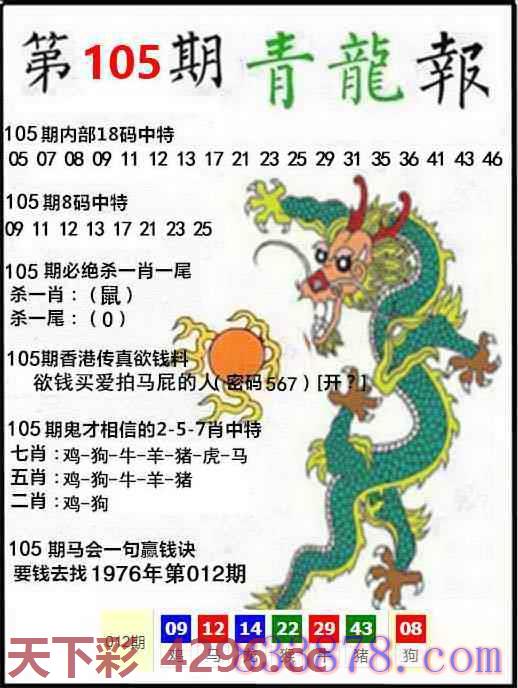 第105期青龍報
105期内部18码中特
05 07 08 09 11 12 13 17 21 23 25 29 31 35 36 41 43 46
105期8码中特
09 11 12 13 17 21 23 25
105期必绝杀一肖一尾
杀一肖：(鼠)
杀一尾：(0)
105期香港传真欲钱料
欲钱买爱拍马屁的人(密码567)[开?]
105期鬼才相信的2-5-7肖中特
七肖：鸡-狗-牛-羊-猪-虎-马
五肖：鸡-狗-牛-羊-猪
二肖：鸡-狗
105期马会一句赢钱诀
要钱去找1976年第012期
012期 09 12 14 22 29 43 08
鸡 马 龙 猴 牛 猪 狗
天下彩 4296.cc